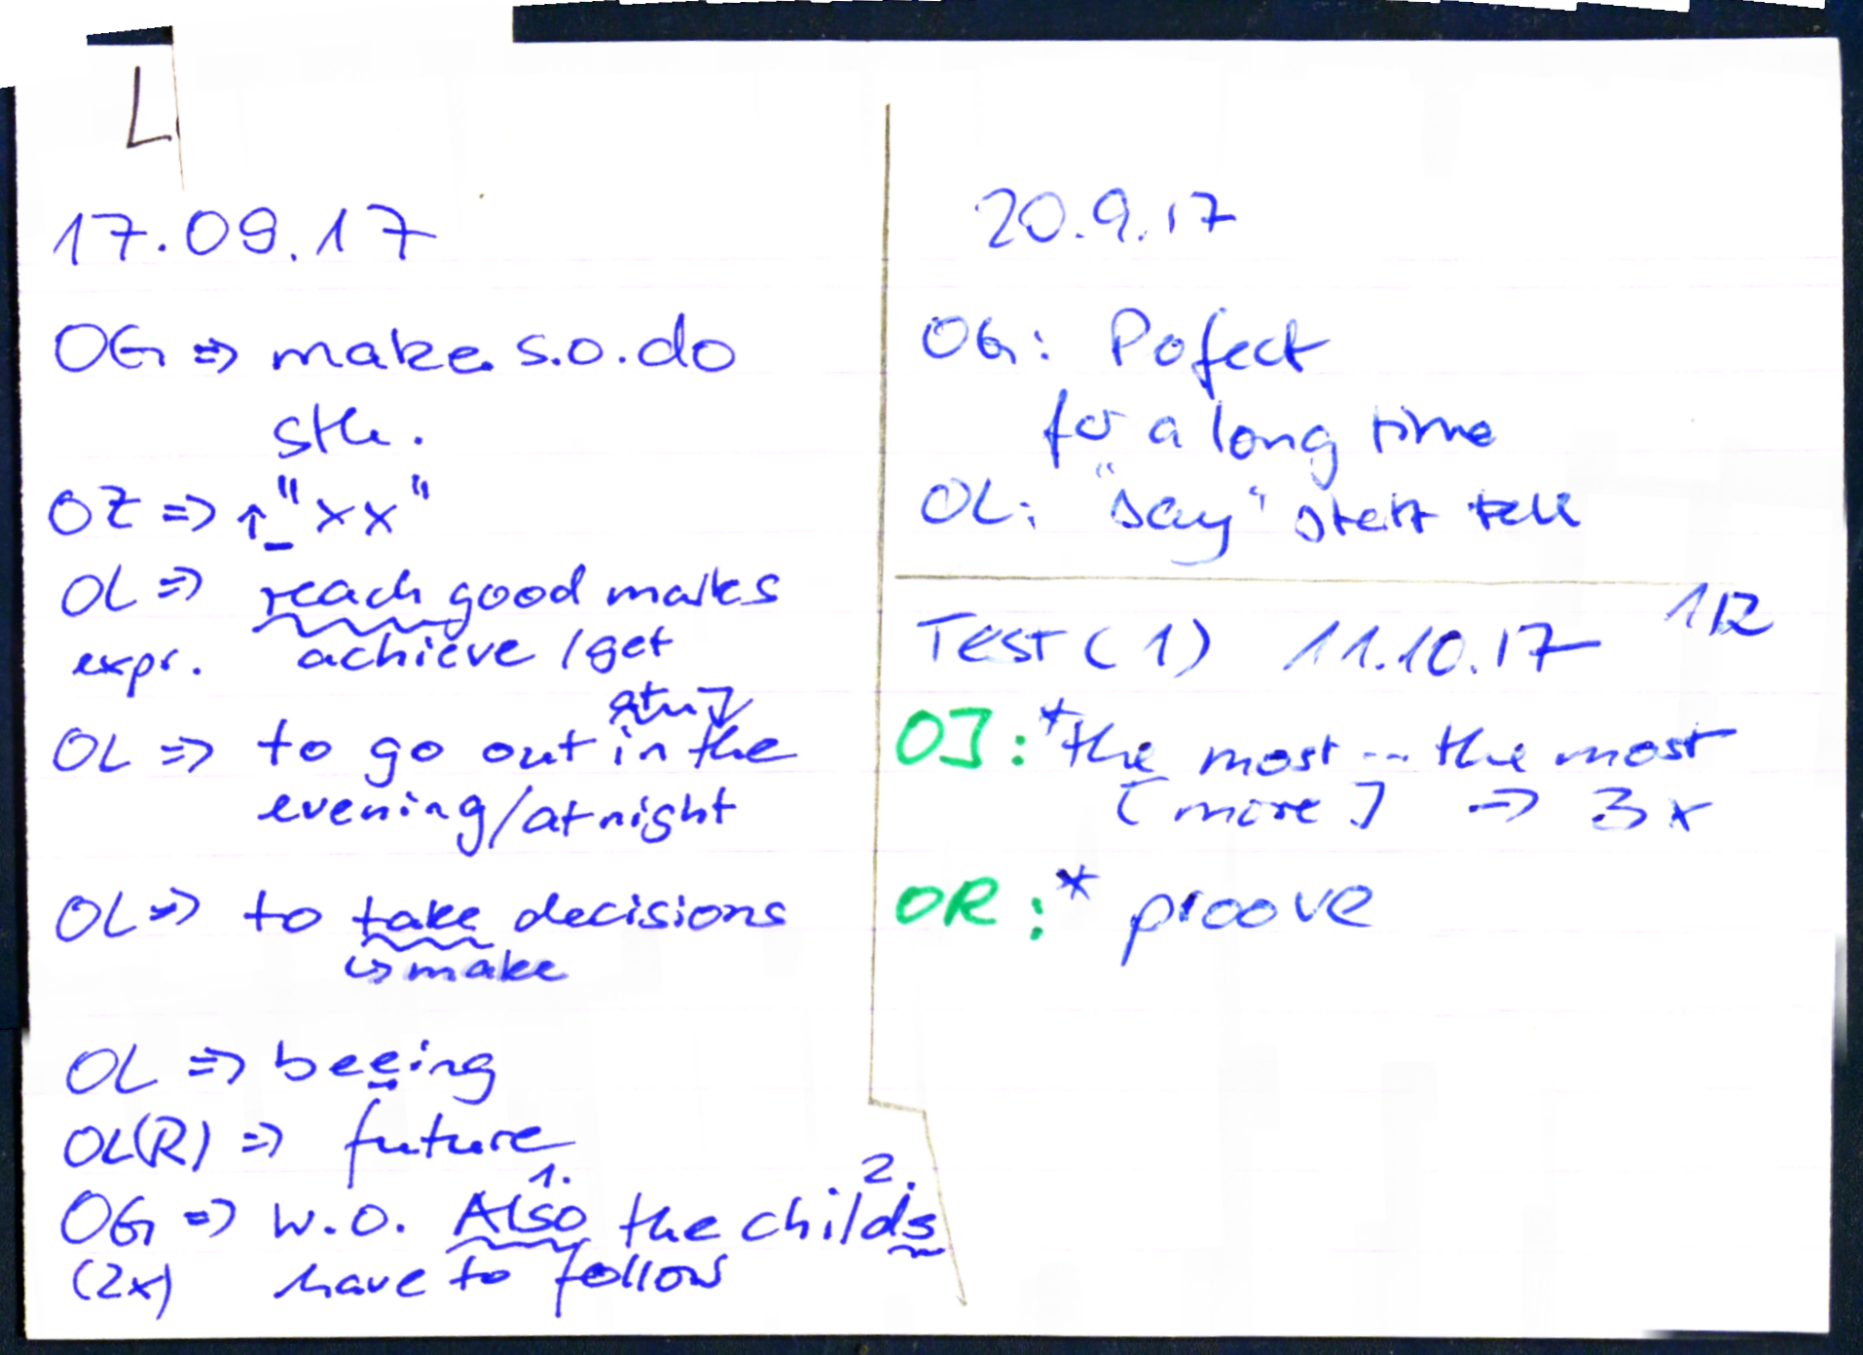 L
17.09.17
OG => make s.o. do
sth.
OZ => ↑_"xx"
OL => reach good marks
expr. achieve / get
OL => to go out in the
evening/at night
OL => to take decisions
↳ make
OL => beeing
OL(R) => future
1. 2.
OG => w.o. Also the childs
(2x) have to follow
20.9.17
OG: Pofect
for a long time
OL: "say" statt tell
Test (1) 11.10.17 1/2
OJ: *the most -- the most
[more] => 3x
OR: * proove